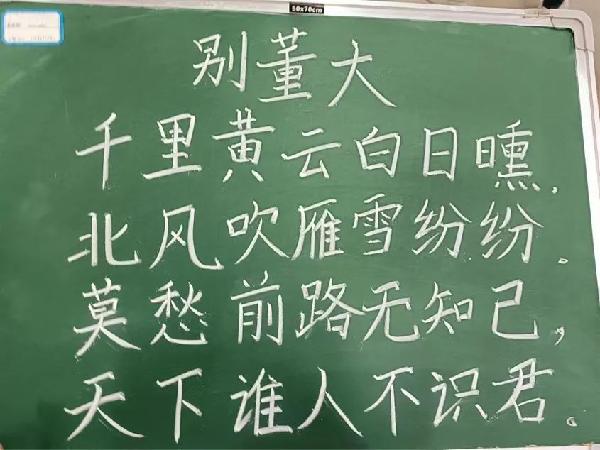 50x70cm
别董大
千里黄云白日曛,
北风吹雁雪纷纷。
莫愁前路无知己,
天下谁人不识君。